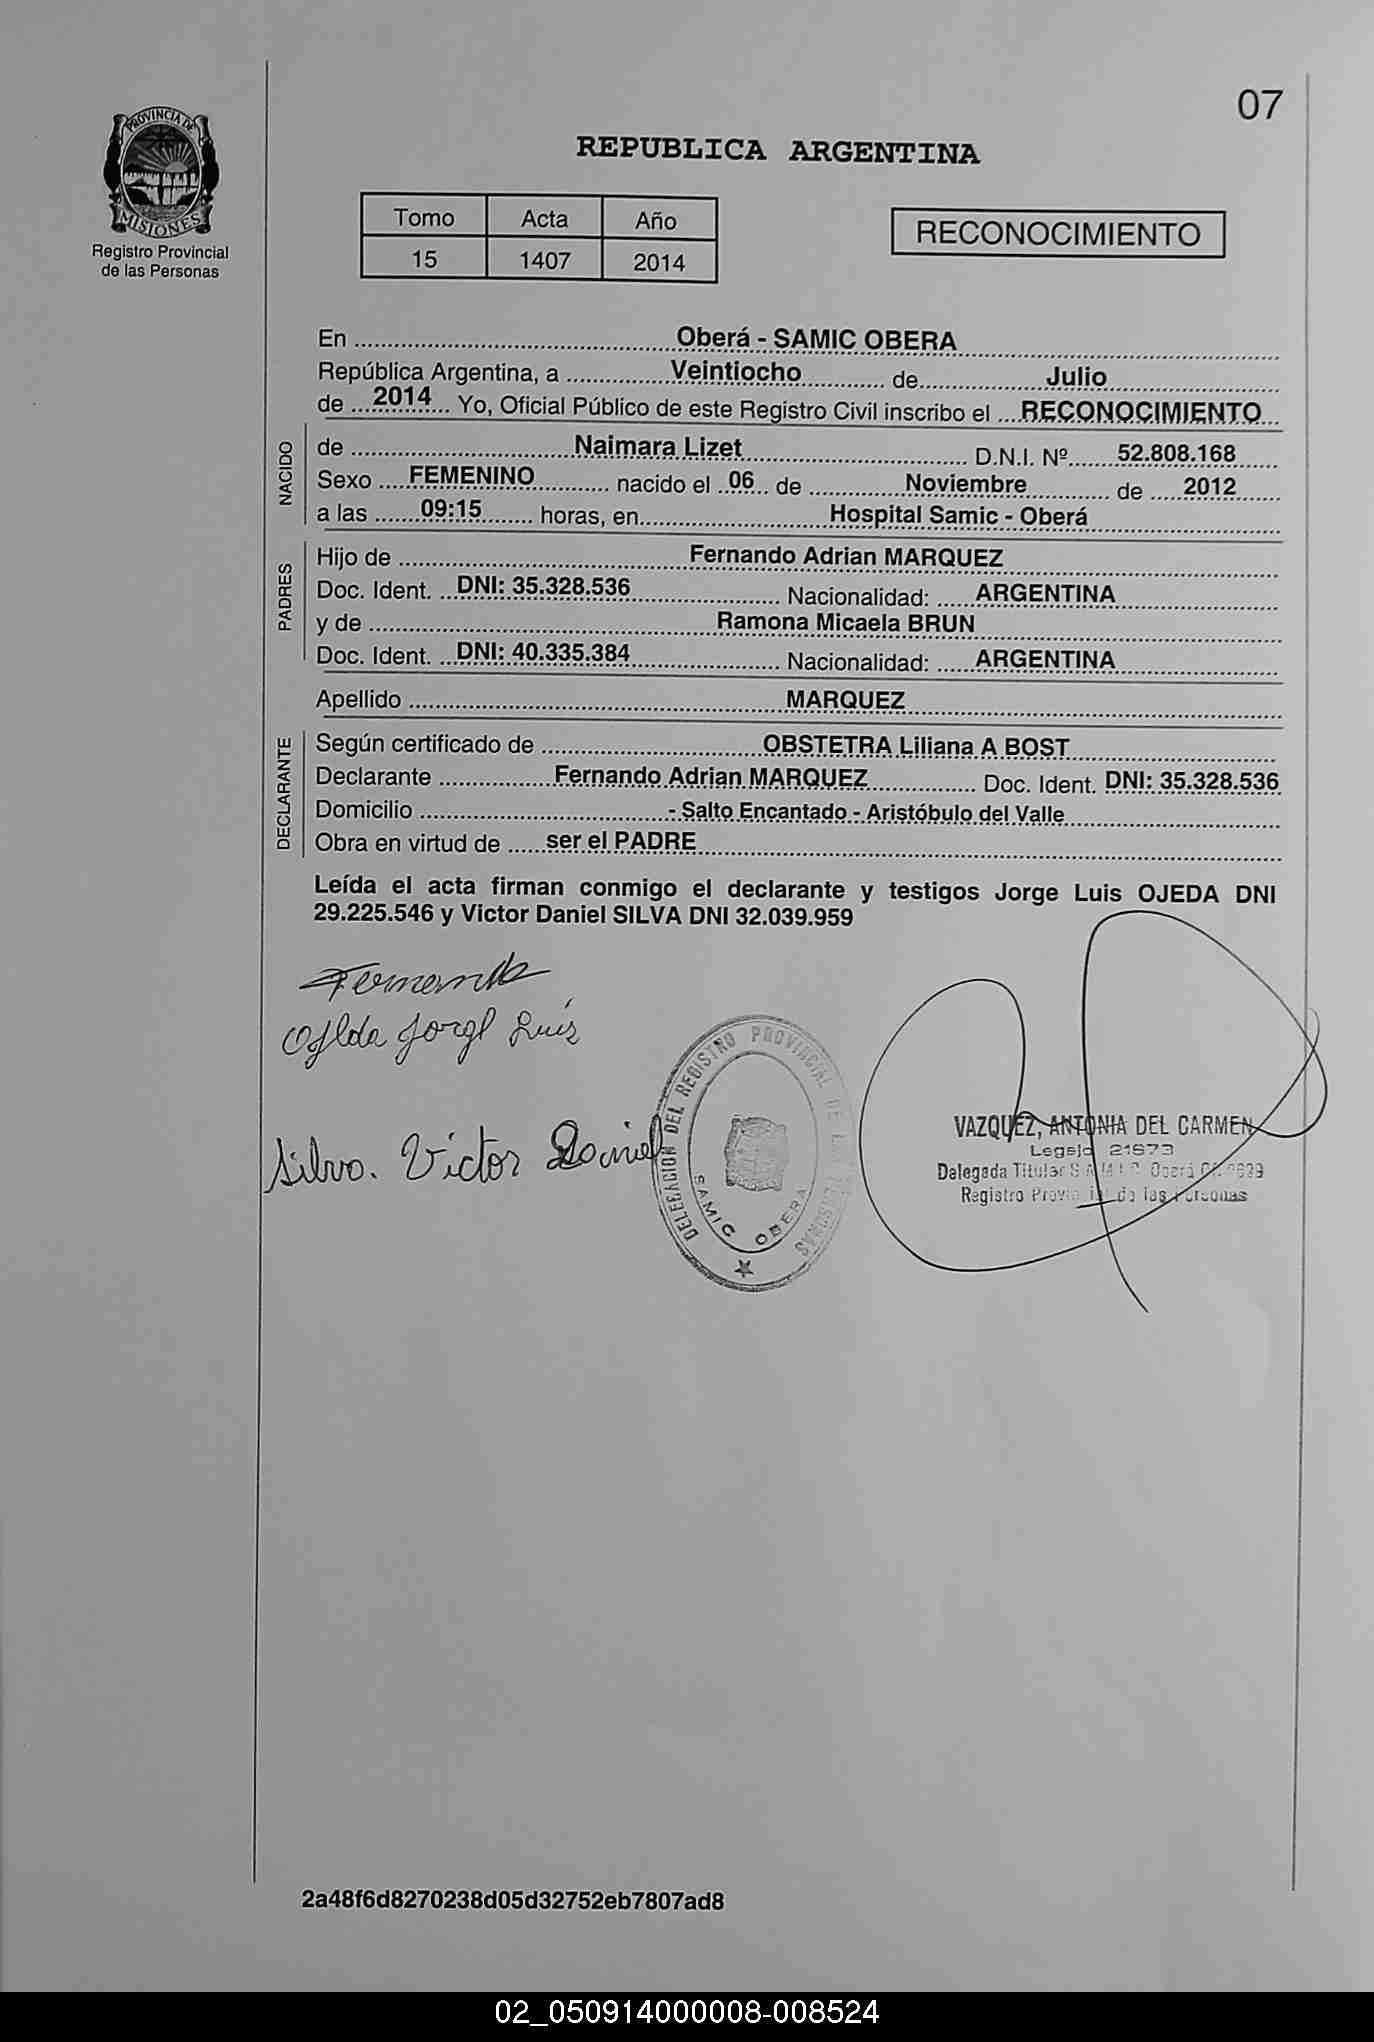 07
PROVINCIA DE
MISIONES
Registro Provincial
de las Personas
REPUBLICA ARGENTINA
Tomo Acta Año
15 1407 2014
RECONOCIMIENTO
En Oberá - SAMIC OBERA
República Argentina, a Veintiocho de Julio
de 2014 Yo, Oficial Público de este Registro Civil inscribo el RECONOCIMIENTO
NACIDO
de Naimara Lizet D.N.I. Nº 52.808.168
Sexo FEMENINO nacido el 06 de Noviembre de 2012
a las 09:15 horas, en Hospital Samic - Oberá
PADRES
Hijo de Fernando Adrian MARQUEZ
Doc. Ident. DNI: 35.328.536 Nacionalidad: ARGENTINA
y de Ramona Micaela BRUN
Doc. Ident. DNI: 40.335.384 Nacionalidad: ARGENTINA
Apellido MARQUEZ
DECLARANTE
Según certificado de OBSTETRA Liliana A BOST
Declarante Fernando Adrian MARQUEZ Doc. Ident. DNI: 35.328.536
Domicilio - Salto Encantado - Aristóbulo del Valle
Obra en virtud de ser el PADRE
Leída el acta firman conmigo el declarante y testigos Jorge Luis OJEDA DNI
29.225.546 y Victor Daniel SILVA DNI 32.039.959
Fernando
Ojeda Jorge Luis
Silva. Victor Daniel
DELEGACION DEL REGISTRO PROVINCIAL DE LAS PERSONAS
SAMIC OBERA
VAZQUEZ, ANTONIA DEL CARMEN
Legajo 21673
Delegada Titular Oberá
Registro Provincial de las Personas
2a48f6d8270238d05d32752eb7807ad8
02_050914000008-008524